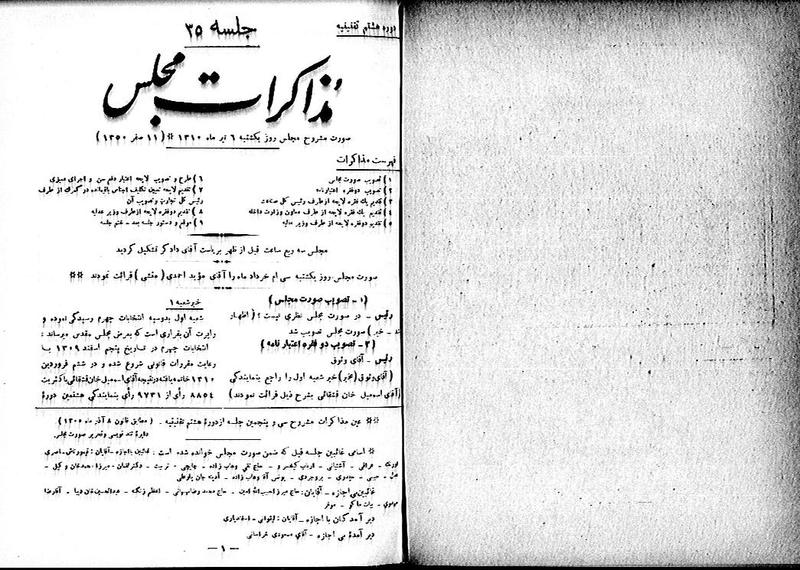 دوره هشتم تقنینیه
جلسه ۳۵
مذاکرات مجلس
صورت مشروح مجلس روز یکشنبه ۶ تیر ماه ۱۳۱۰ * (۱۱ صفر ۱۳۵۰)
فهرست مذاکرات
۱) تصویب صورت مجلس
۲) تصویب دوفقره اعتبارنامه
۳) تقدیم یك فقره لایحه ازطرف رئیس کل صناعت
۴) تقدیم یك فقره لایحه از طرف معاون وزارت داخله
۵) تقدیم دوفقره لایحه از طرف وزیر مالیه
۶) طرح و تصویب لایحه اعتبار دفع سن و اجرای ممیزی
۷) تقدیم لایحه تعیین تکلیف اجناس باقیمانده در گمرك از طرف
رئیس کل تجارت و تصویب آن
۸) تقدیم دوفقره لایحه ازطرف وزیر عدلیه
۹) موقع و دستور جلسه بعد - ختم جلسه
مجلس سه ربع ساعت قبل از ظهر بریاست آقای دادگر تشکیل گردید
صورت مجلس روز یکشنبه سی ام خرداد ماه را آقای مؤید احمدی (منشی) قرائت نمودند **
(۱- تصویب صورت مجلس)
رئیس - در صورت مجلس نظری نیست؟ (اظهار
شد - خیر) صورت مجلس تصویب شد
(۲- تصویب دو فقره اعتبار نامه)
رئیس - آقای وثوق
(آقای وثوق (مخبر) خبر شعبه اول را راجع بنمایندگی
آقای اسمعیل خان قشقائی بشرح ذیل قرائت نمودند)
خبر شعبه ۱
شعبه اول بدوسیه انتخابات جهرم رسیدگی نموده و
راپرت آن بقراری است که بعرض مجلس مقدس میرساند:
انتخابات جهرم در تاریخ پنجم اسفند ۱۳۰۹ با
رعایت مقررات قانونی شروع شده و در ششم فروردین
۱۳۱۰ خاتمه یافته درنتیجه آقای اسمعیل خان قشقائی باکثریت
۸۸۵۴ رأی از ۹۷۳۱ رأی بنمایندگی هشتمین دورهٔ
** عین مذاکرات مشروح سی و پنجمین جلسه ازدورهٔ هشتم تقنینیه . (مطابق قانون ۸ آذر ماه ۱۳۰۵)
دایرهٔ تند نویسی وتحریر صورت مجلس
* اسامی غائبین جلسه قبل که ضمن صورت مجلس خوانده شده است: غائبین بااجازه - آقایان:
دیر آمدگان با اجازه - آقایان:
دیر آمدهٔ بی اجازه - آقای مسعودی خراسانی
— ۱ —